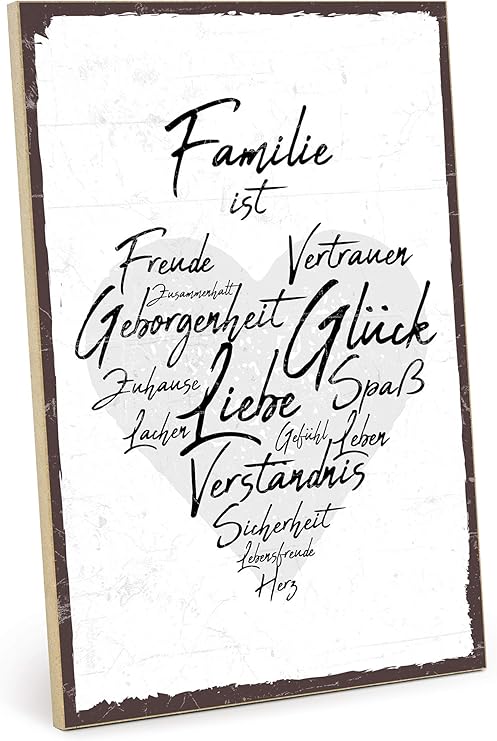 Familie
ist
Freude Vertrauen
Zusammenhalt
Geborgenheit Glück
Zuhause Liebe Spaß
Lachen Gefühl Leben
Verständnis
Sicherheit
Lebensfreude
Herz